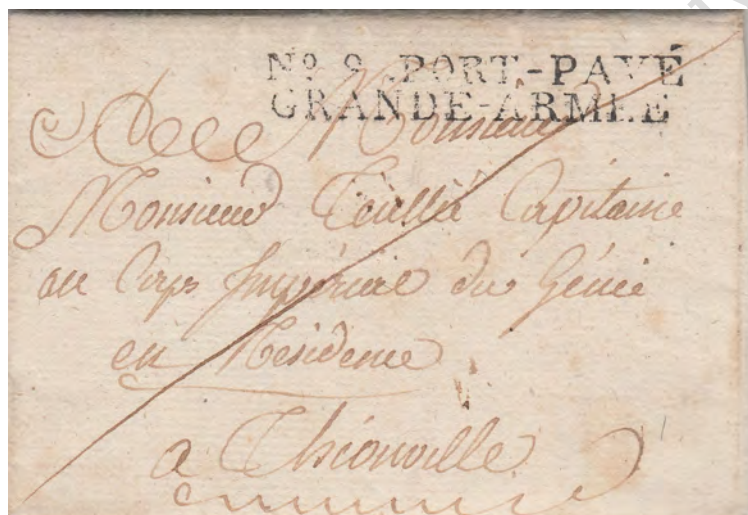 Nº 9. PORT-PAYÉ
GRANDE-ARMÉE
A Monsieur
Monsieur Capitaine
au Corps Impérial du Génie
en Résidence
a Thionville